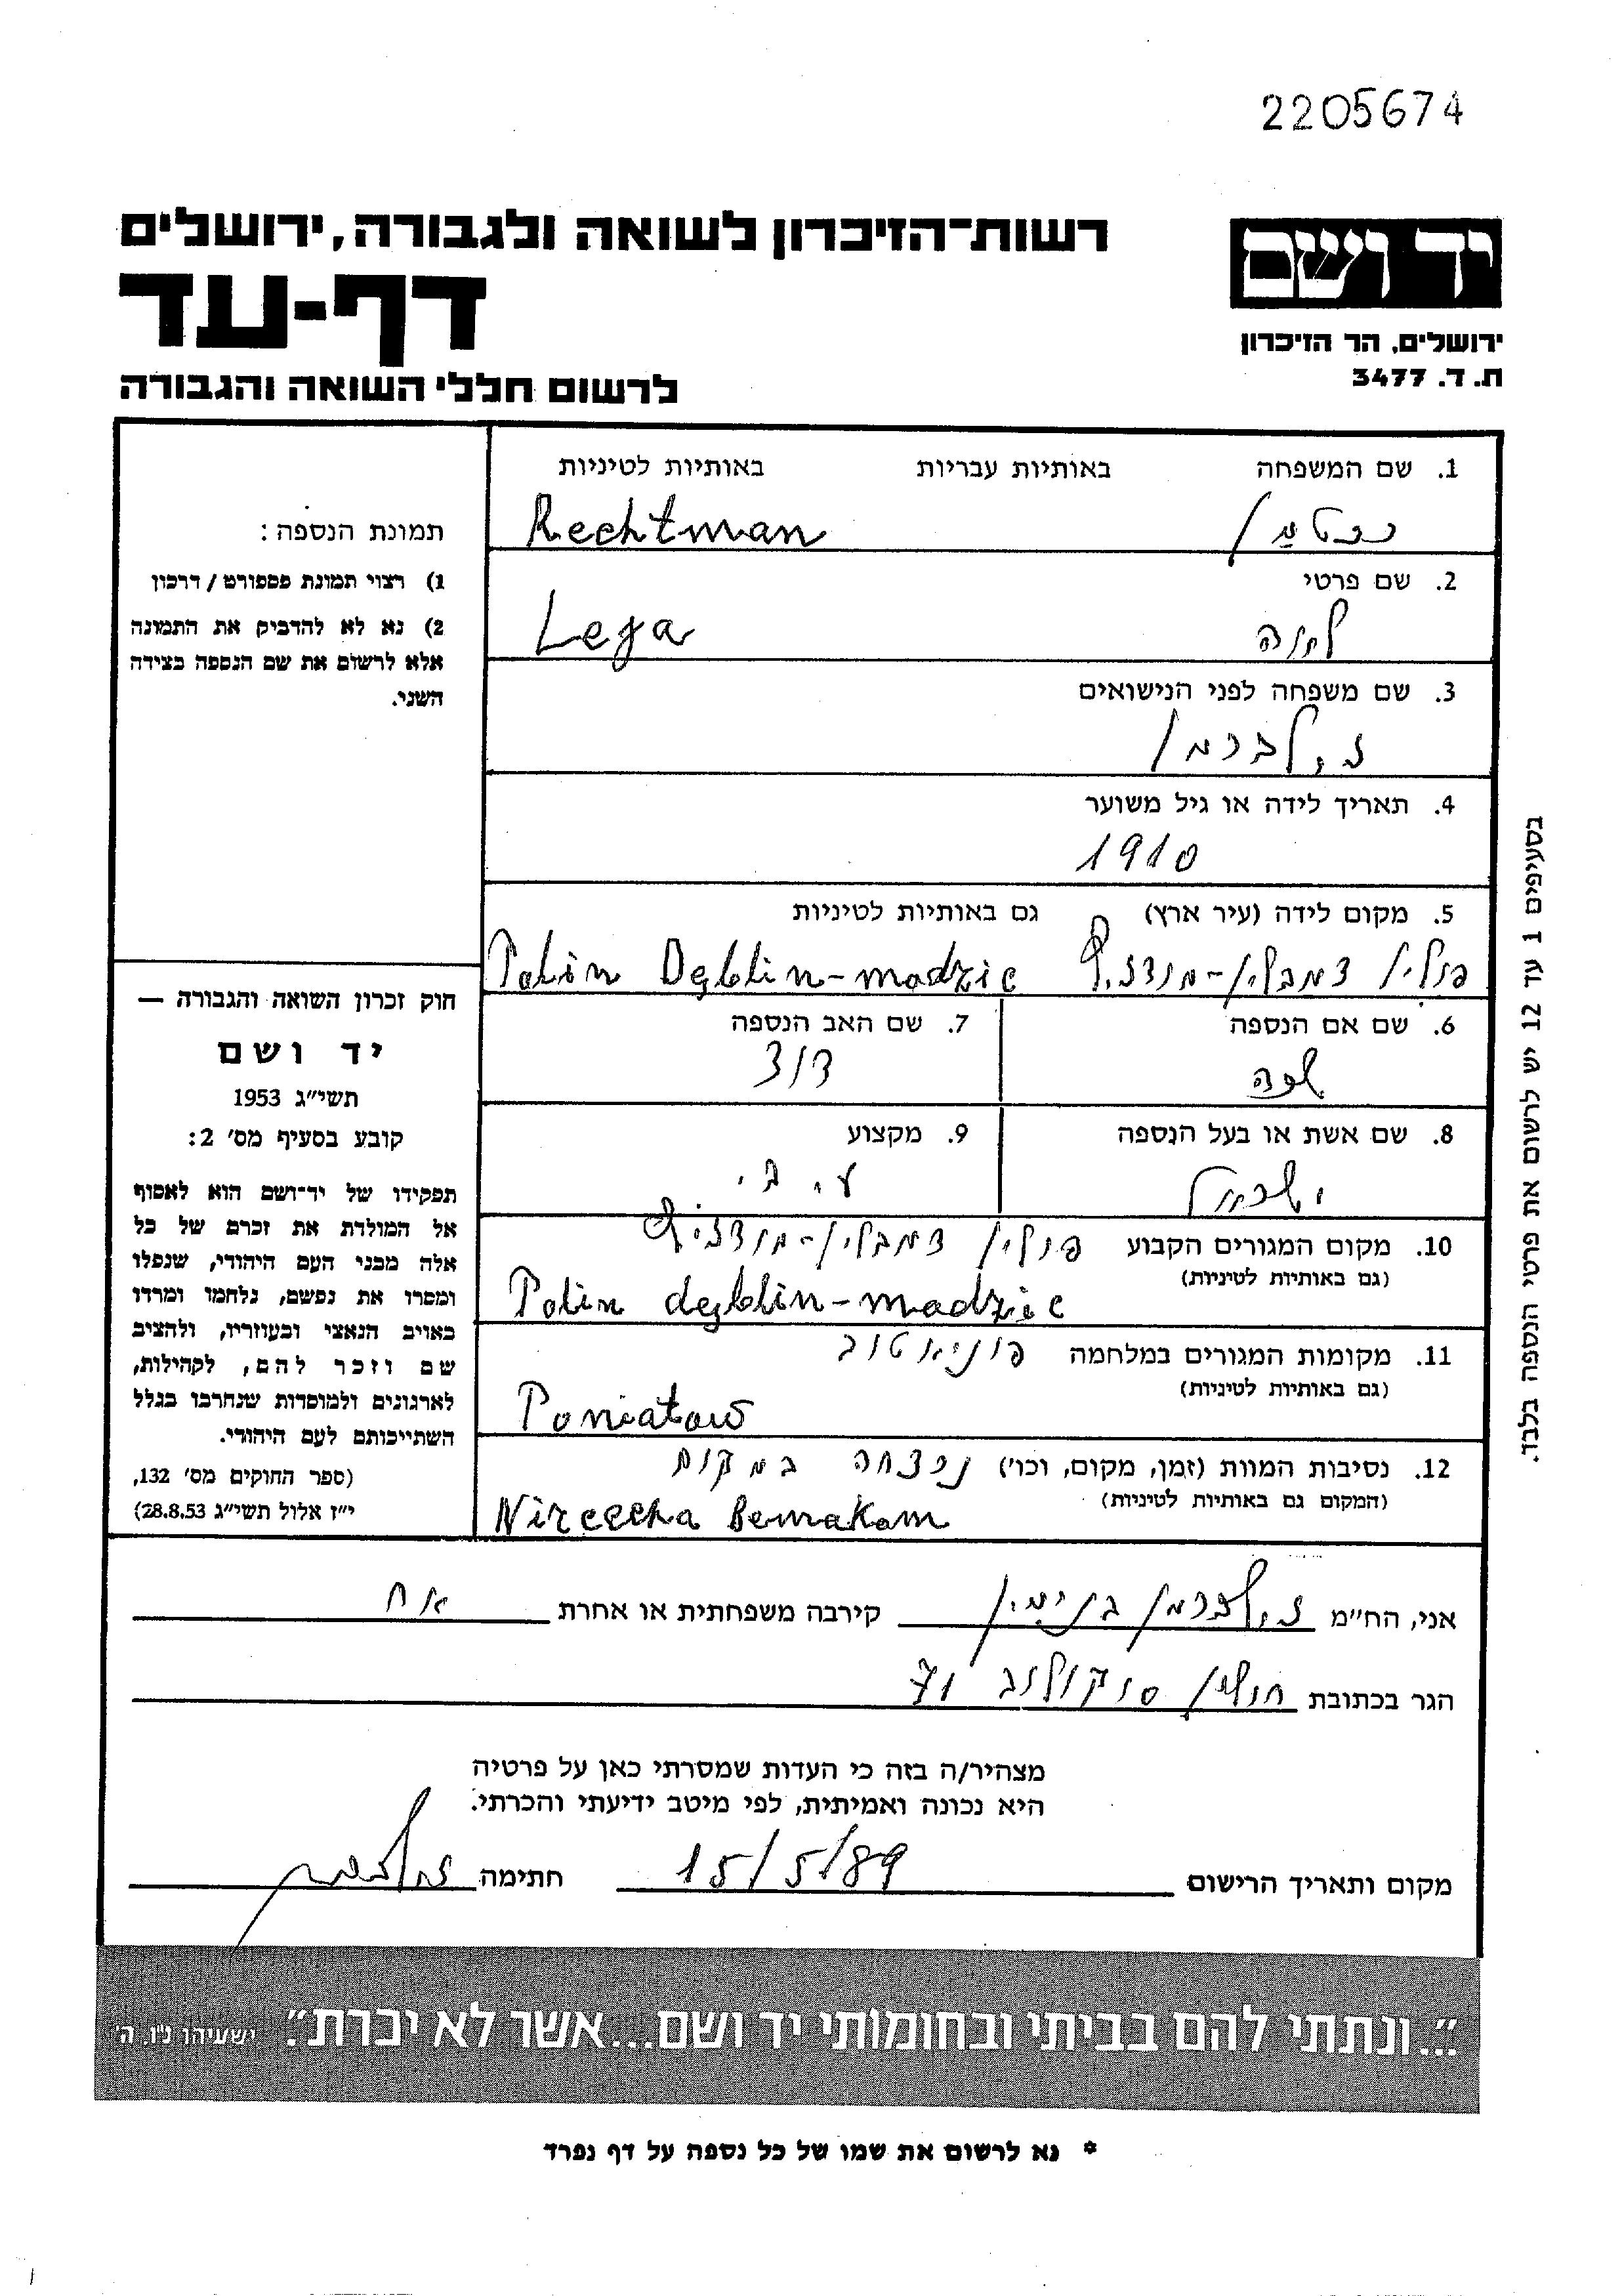 2205674
יד ושם
ירושלים, הר הזיכרון
ת. ד. 3477
רשות-הזיכרון לשואה ולגבורה, ירושלים
דף-עד
לרשום חללי השואה והגבורה
1. שם המשפחה באותיות עבריות באותיות לטיניות
רכטמן Rechtman
2. שם פרטי
Leja
3. שם משפחה לפני הנישואים
זילברמן
4. תאריך לידה או גיל משוער
1910
5. מקום לידה (עיר ארץ) גם באותיות לטיניות
פולין דמבלין-מודז'יץ Polin Dęblin-modzic
6. שם אם הנספה
7. שם האב הנספה
דוד
8. שם אשת או בעל הנספה
9. מקצוע
10. מקום המגורים הקבוע פולין דמבלין-מודז'יץ
(גם באותיות לטיניות)
Polin dęblin-modzic
11. מקומות המגורים במלחמה פוניאטוב
(גם באותיות לטיניות)
Poniatow
12. נסיבות המוות (זמן, מקום, וכו') נרצחה במקום
(המקום גם באותיות לטיניות)
Nirccha Bemakom
תמונת הנספה:
1) רצוי תמונת פספורט / דרכון
2) נא לא להדביק את התמונה
אלא לרשום את שם הנספה בצידה
השני.
חוק זכרון השואה והגבורה —
יד ושם
תשי"ג 1953
קובע בסעיף מס' 2:
תפקידו של יד-ושם הוא לאסוף
אל המולדת את זכרם של כל
אלה מבני העם היהודי, שנפלו
ומסרו את נפשם, נלחמו ומרדו
באויב הנאצי ובעוזריו, ולהציב
שם וזכר להם, לקהילות,
לארגונים ולמוסדות שנחרבו בגלל
השתייכותם לעם היהודי.
(ספר החוקים מס' 132,
י"ז אלול תשי"ג 28.8.53)
בסעיפים 1 עד 12 יש לרשום את פרטי הנספה בלבד.
אני, הח"מ זילברמן בנימין קירבה משפחתית או אחרת אח
הגר בכתובת חולון סוקולוב 71
מצהיר/ה בזה כי העדות שמסרתי כאן על פרטיה
היא נכונה ואמיתית, לפי מיטב ידיעתי והכרתי.
מקום ותאריך הרישום 15/5/89 חתימה
"...ונתתי להם בביתי ובחומותי יד ושם...אשר לא יכרת". ישעיהו נ"ו, ה'
* נא לרשום את שמו של כל נספה על דף נפרד